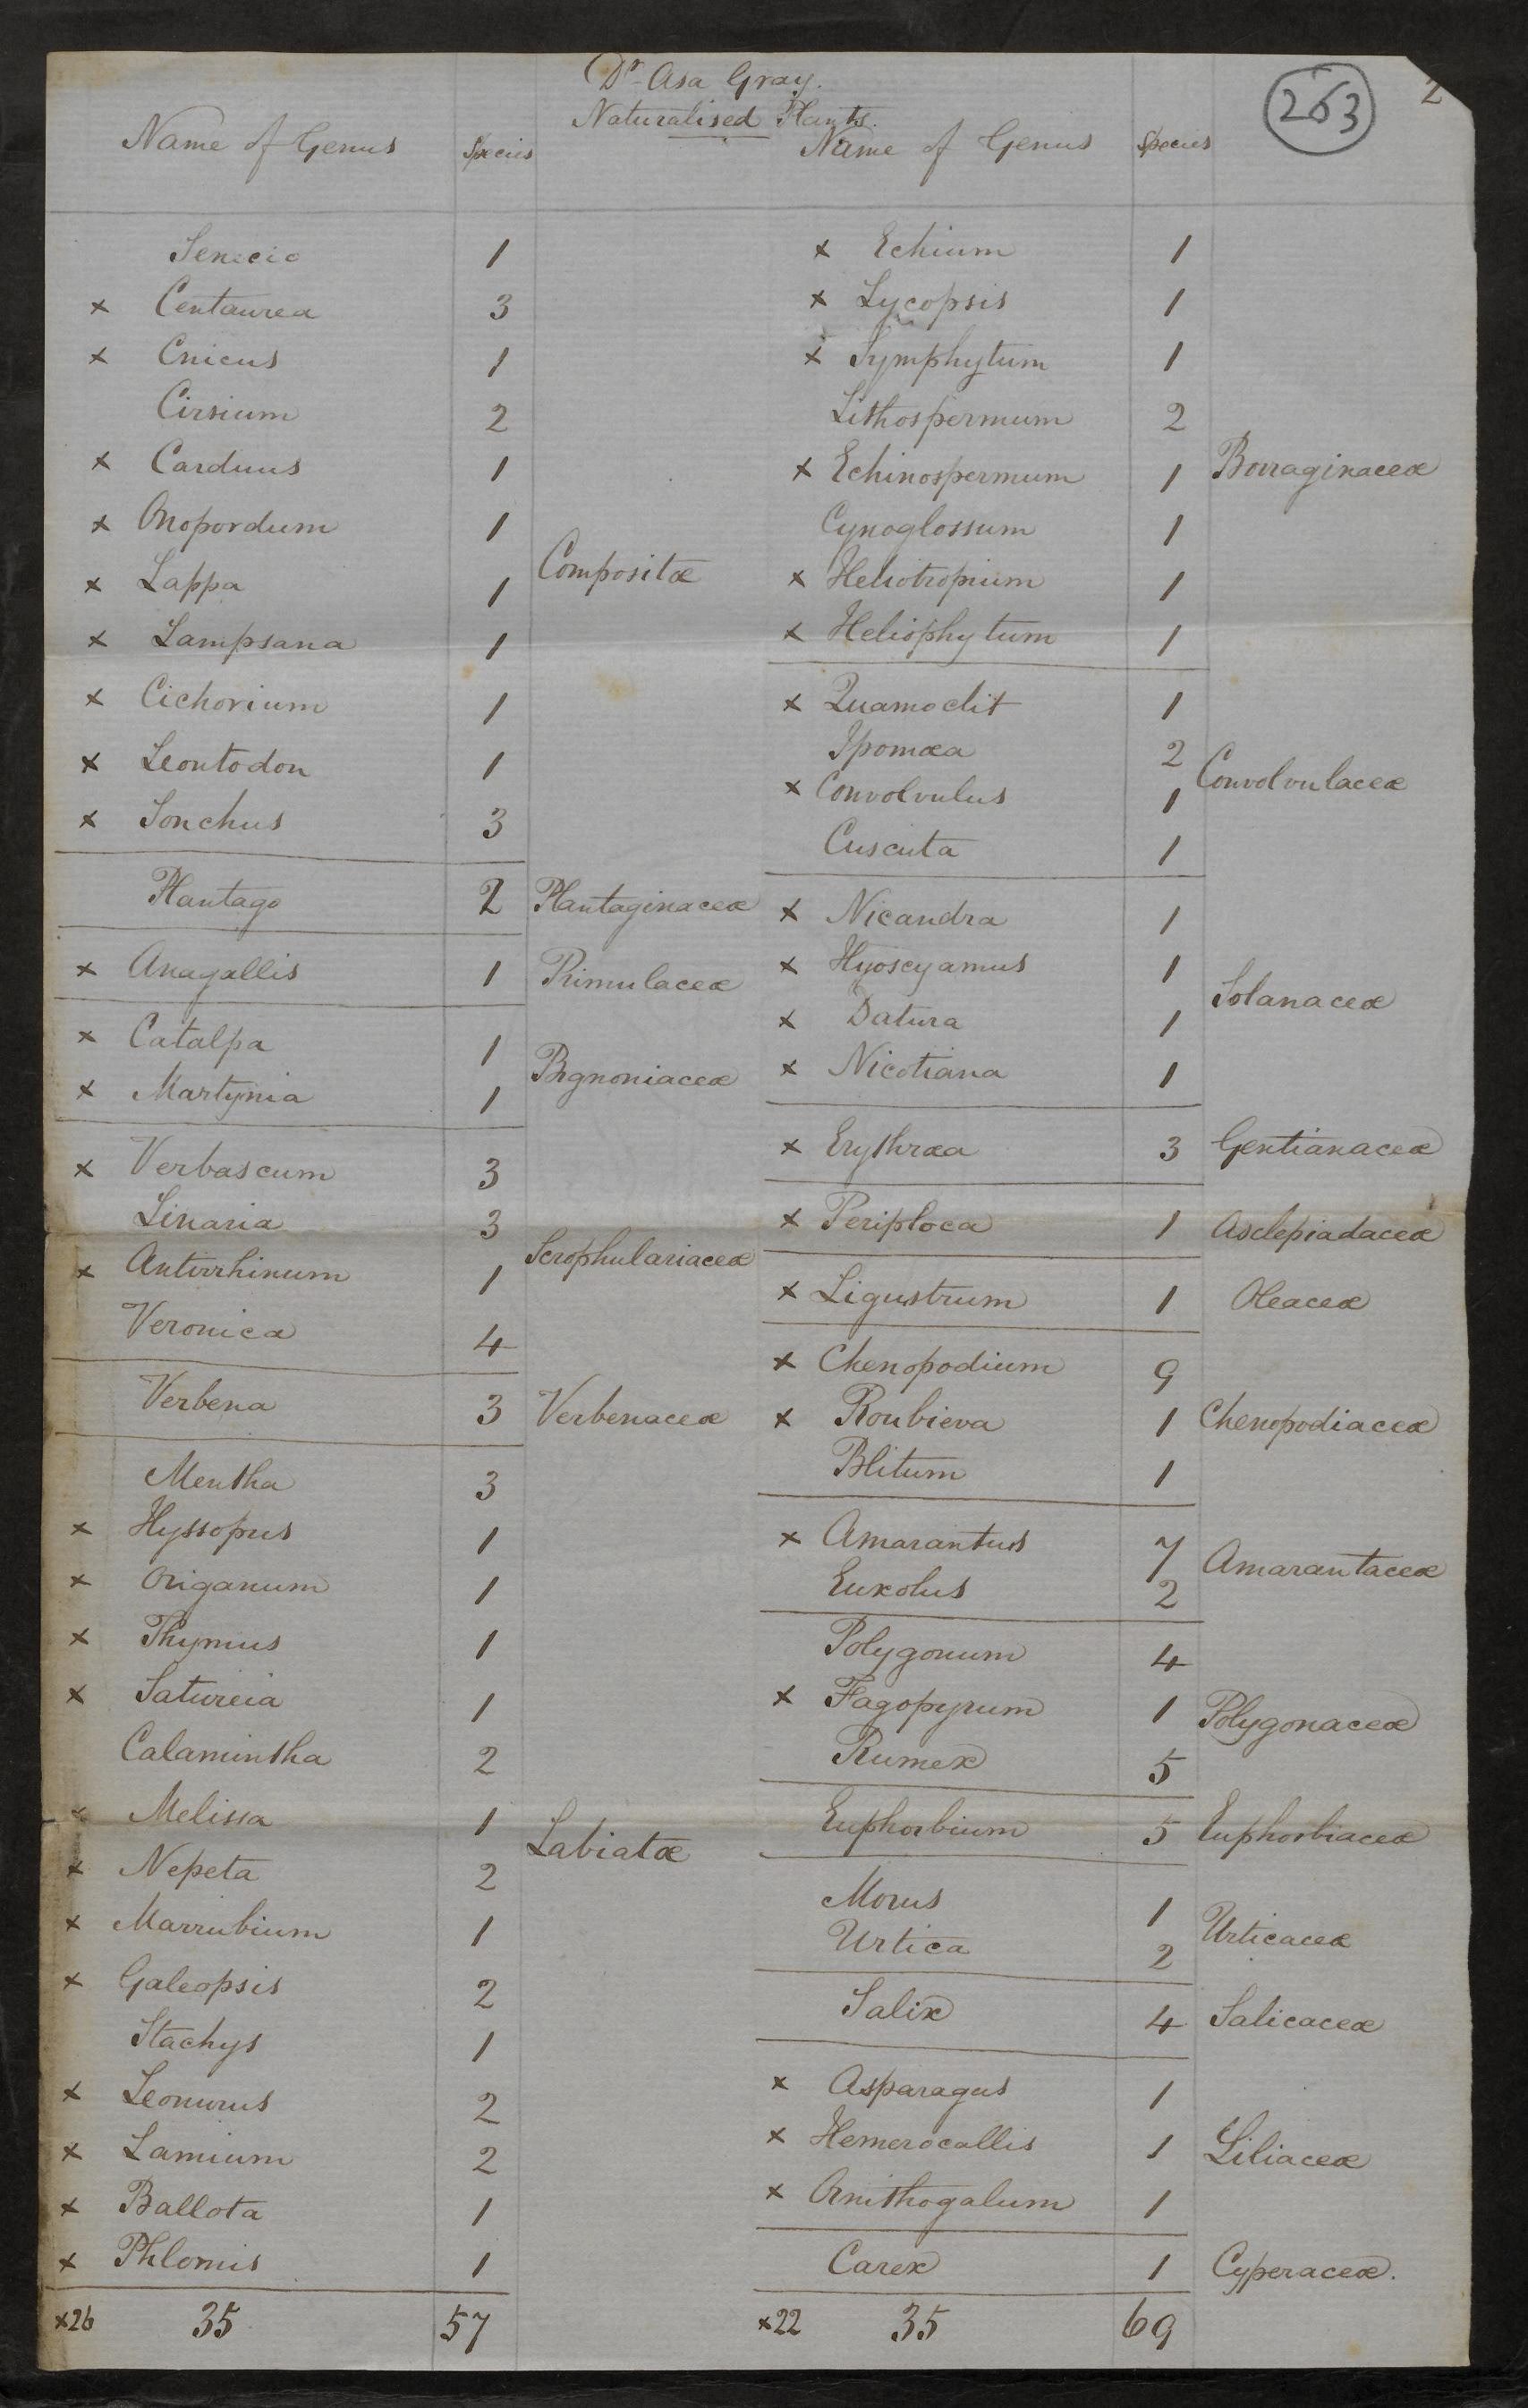 Dr. Asa Gray.
Naturalised Plants.
263
2
Name of Genus Species
Senecio 1
x Centaurea 3
x Cnicus 1
Cirsium 2
x Carduus 1
x Onopordum 1
Compositæ
x Lappa 1
x Lampsana 1
x Cichorium 1
x Leontodon 1
x Sonchus 3
Plantago 2 Plantaginaceæ
x Anagallis 1 Primulaceæ
x Catalpa 1
Bignoniaceæ
x Martynia 1
x Verbascum 3
Linaria 3
Scrophulariaceæ
x Antirrhinum 1
Veronica 4
Verbena 3 Verbenaceæ
Mentha 3
x Hyssopus 1
x Origanum 1
x Thymus 1
x Satureia 1
Calamintha 2
x Melissa 1
Labiatæ
x Nepeta 2
x Marrubium 1
x Galeopsis 2
Stachys 1
x Leonurus 2
x Lamium 2
x Ballota 1
x Phlomis 1
x26 35 57
Name of Genus Species
x Echium 1
x Lycopsis 1
x Symphytum 1
Lithospermum 2
x Echinospermum 1 Borraginaceæ
Cynoglossum 1
x Heliotropium 1
x Heliophytum 1
x Quamoclit 1
Ipomæa 2
Convolvulaceæ
x Convolvulus 1
Cuscuta 1
x Nicandra 1
x Hyoscyamus 1
Solanaceæ
x Datura 1
x Nicotiana 1
x Erythræa 3 Gentianaceæ
x Periploca 1 Asclepiadaceæ
x Ligustrum 1 Oleaceæ
x Chenopodium 9
x Roubieva 1 Chenopodiaceæ
Blitum 1
x Amarantus 7
Amarantaceæ
Euxolus 2
Polygonum 4
x Fagopyrum 1 Polygonaceæ
Rumex 5
Euphorbium 5 Euphorbiaceæ
Morus 1
Urticaceæ
Urtica 2
Salix 4 Salicaceæ
x Asparagus 1
x Hemerocallis 1 Liliaceæ
x Ornithogalum 1
Carex 1 Cyperaceæ.
x22 35 69